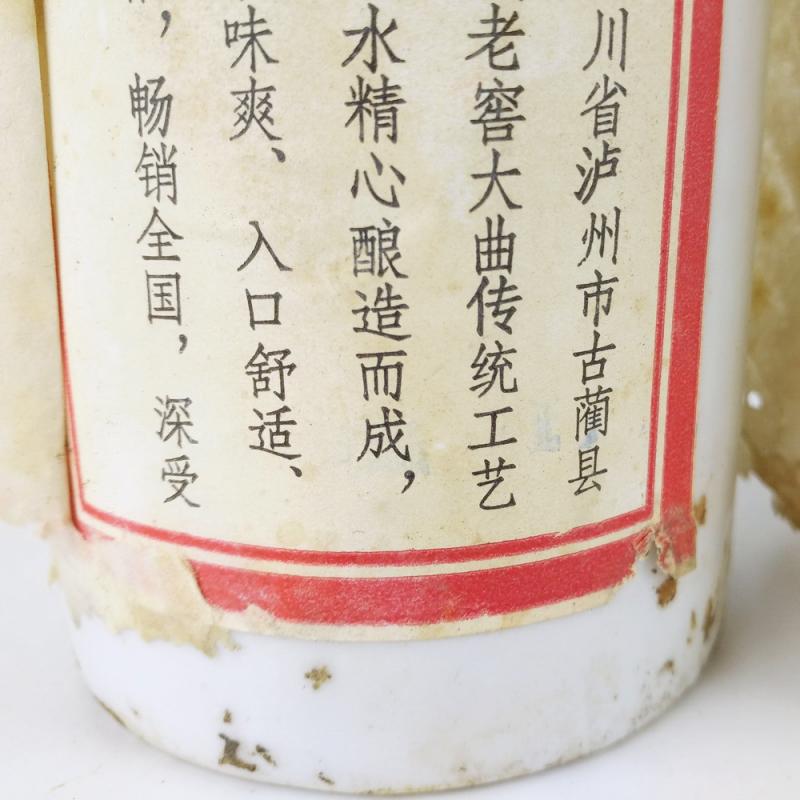 川省泸州市古蔺县
老窖大曲传统工艺
水精心酿造而成，
味爽、入口舒适、
，畅销全国，深受